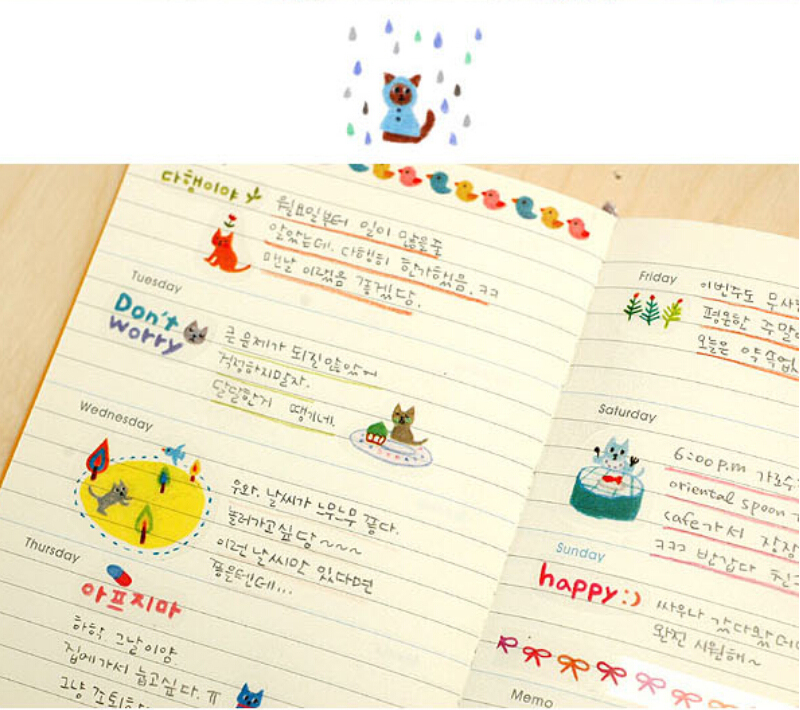 다행이야
월요일부터 일이 많을줄
알았는데. 다행히 한가했음. ㅋㅋ
맨날 이랬음 좋겠당.
Tuesday
Don't
worry
큰 문제가 되진않았어
걱정하지말자.
달달한거 땡기네.
Wednesday
우와. 날씨가 느무느무 좋다.
놀러가고싶당~~~
이런 날씨만 있다면
좋을텐데...
Thursday
아프지마
하핫 그날이얌
집에가서 눕고싶다. ㅠ
그냥
Friday
이번주도
평온한 주말
오늘은
Saturday
6:00 p.m
oriental spoon
cafe가서
ㅋㅋㅋ 반갑다
Sunday
happy :)
싸우나
완전 시원해~
Memo